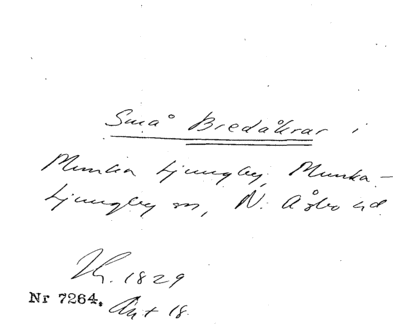 Små Bredåkrar i
Munka Ljungby, Munka-
Ljungby sn, N. Åsbo hd
Th. 1829
Nr 7264. Akt 18.